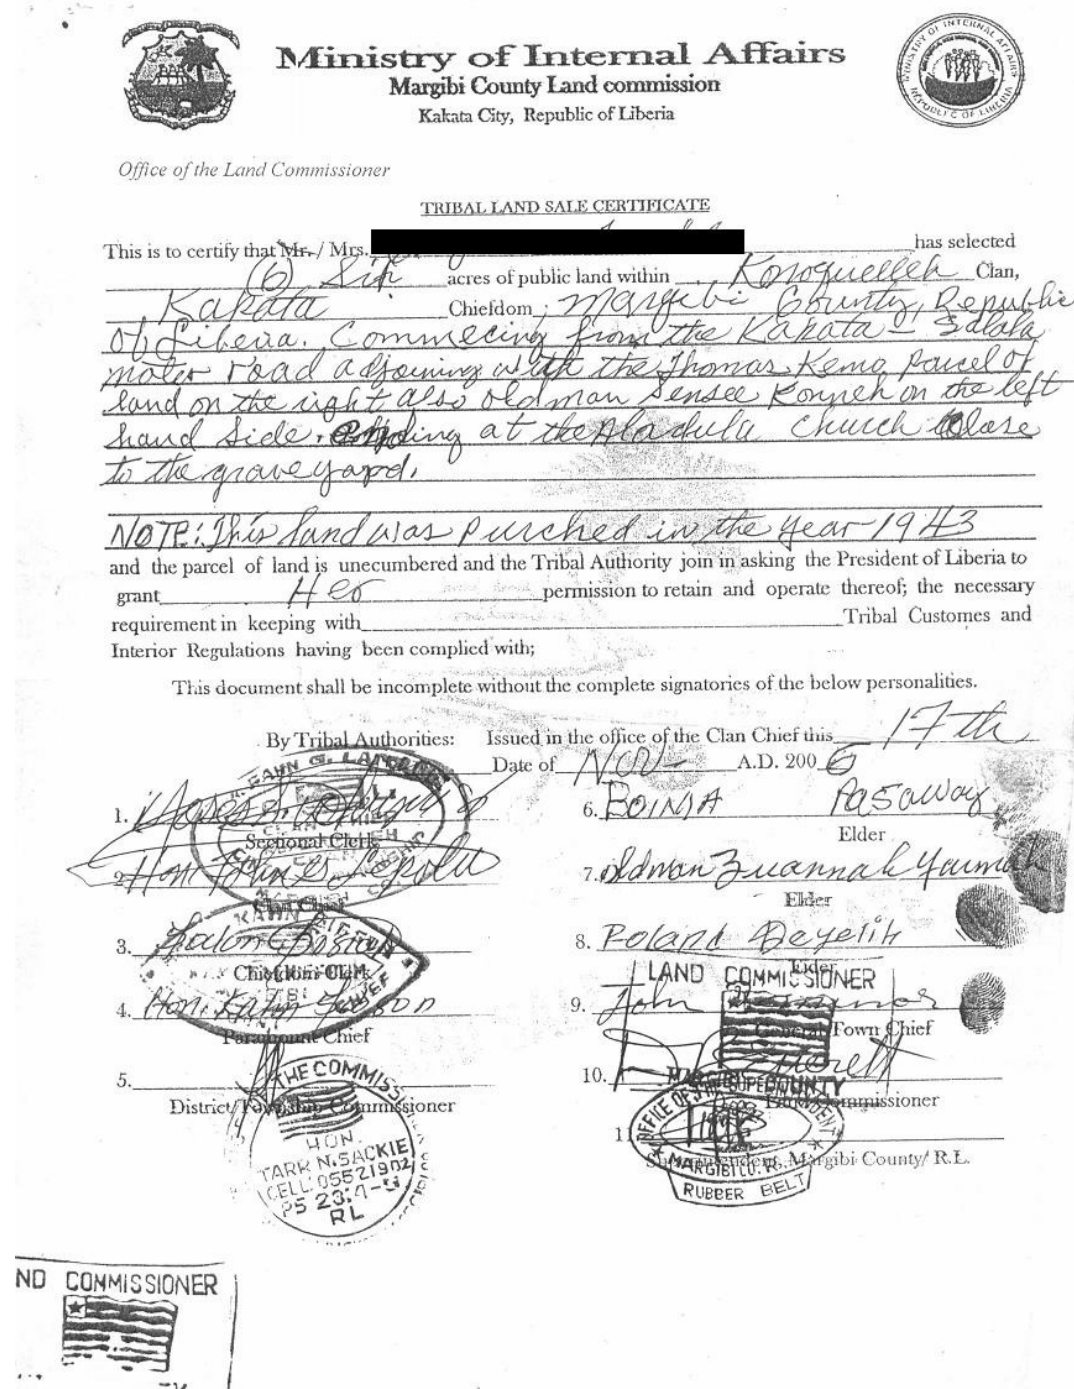 MINISTRY OF INTERNAL AFFAIRS
REPUBLIC OF LIBERIA
Ministry of Internal Affairs
Margibi County Land commission
Kakata City, Republic of Liberia
Office of the Land Commissioner
TRIBAL LAND SALE CERTIFICATE
This is to certify that Mr. / Mrs. has selected
(6) Six acres of public land within Konoquelleh Clan,
Kakata Chiefdom; Margibi County, Republic
of Liberia. Commecing from the Kakata - Salala
motor road adjoining with the Thomas Kemo parcel of
land on the right also oldman Sensee Konneh on the left
hand side. ending at the Aladula church Close
to the graveyard.
NOTE: This land was purched in the year 1943
and the parcel of land is unecumbered and the Tribal Authority join in asking the President of Liberia to
grant Her permission to retain and operate thereof; the necessary
requirement in keeping with Tribal Customes and
Interior Regulations having been complied with;
This document shall be incomplete without the complete signatories of the below personalities.
By Tribal Authorities: Issued in the office of the Clan Chief this 17th
Date of Nov- A.D. 2006
1.
Sectional Clerk
2. Hon
Clan Chief
3.
Chiefdom Clerk
4. Hon.
Paramount Chief
5.
District/Township Commissioner
6. BOIMA
Elder
7. oldman Zuannah
Elder
8. Roland
Elder
9. John
General Town Chief
10.
Land Commissioner
11
Superintendent, Margibi County/ R.L.
LAND COMMISSIONER
MARGIBI COUNTY
OFFICE OF SUPERINTENDENT
MARGIBI CO. R.L.
RUBBER BELT
THE COMMISS
HON.
TARR N. SACKIE
CELL: 05521902
RL
ND COMMISSIONER